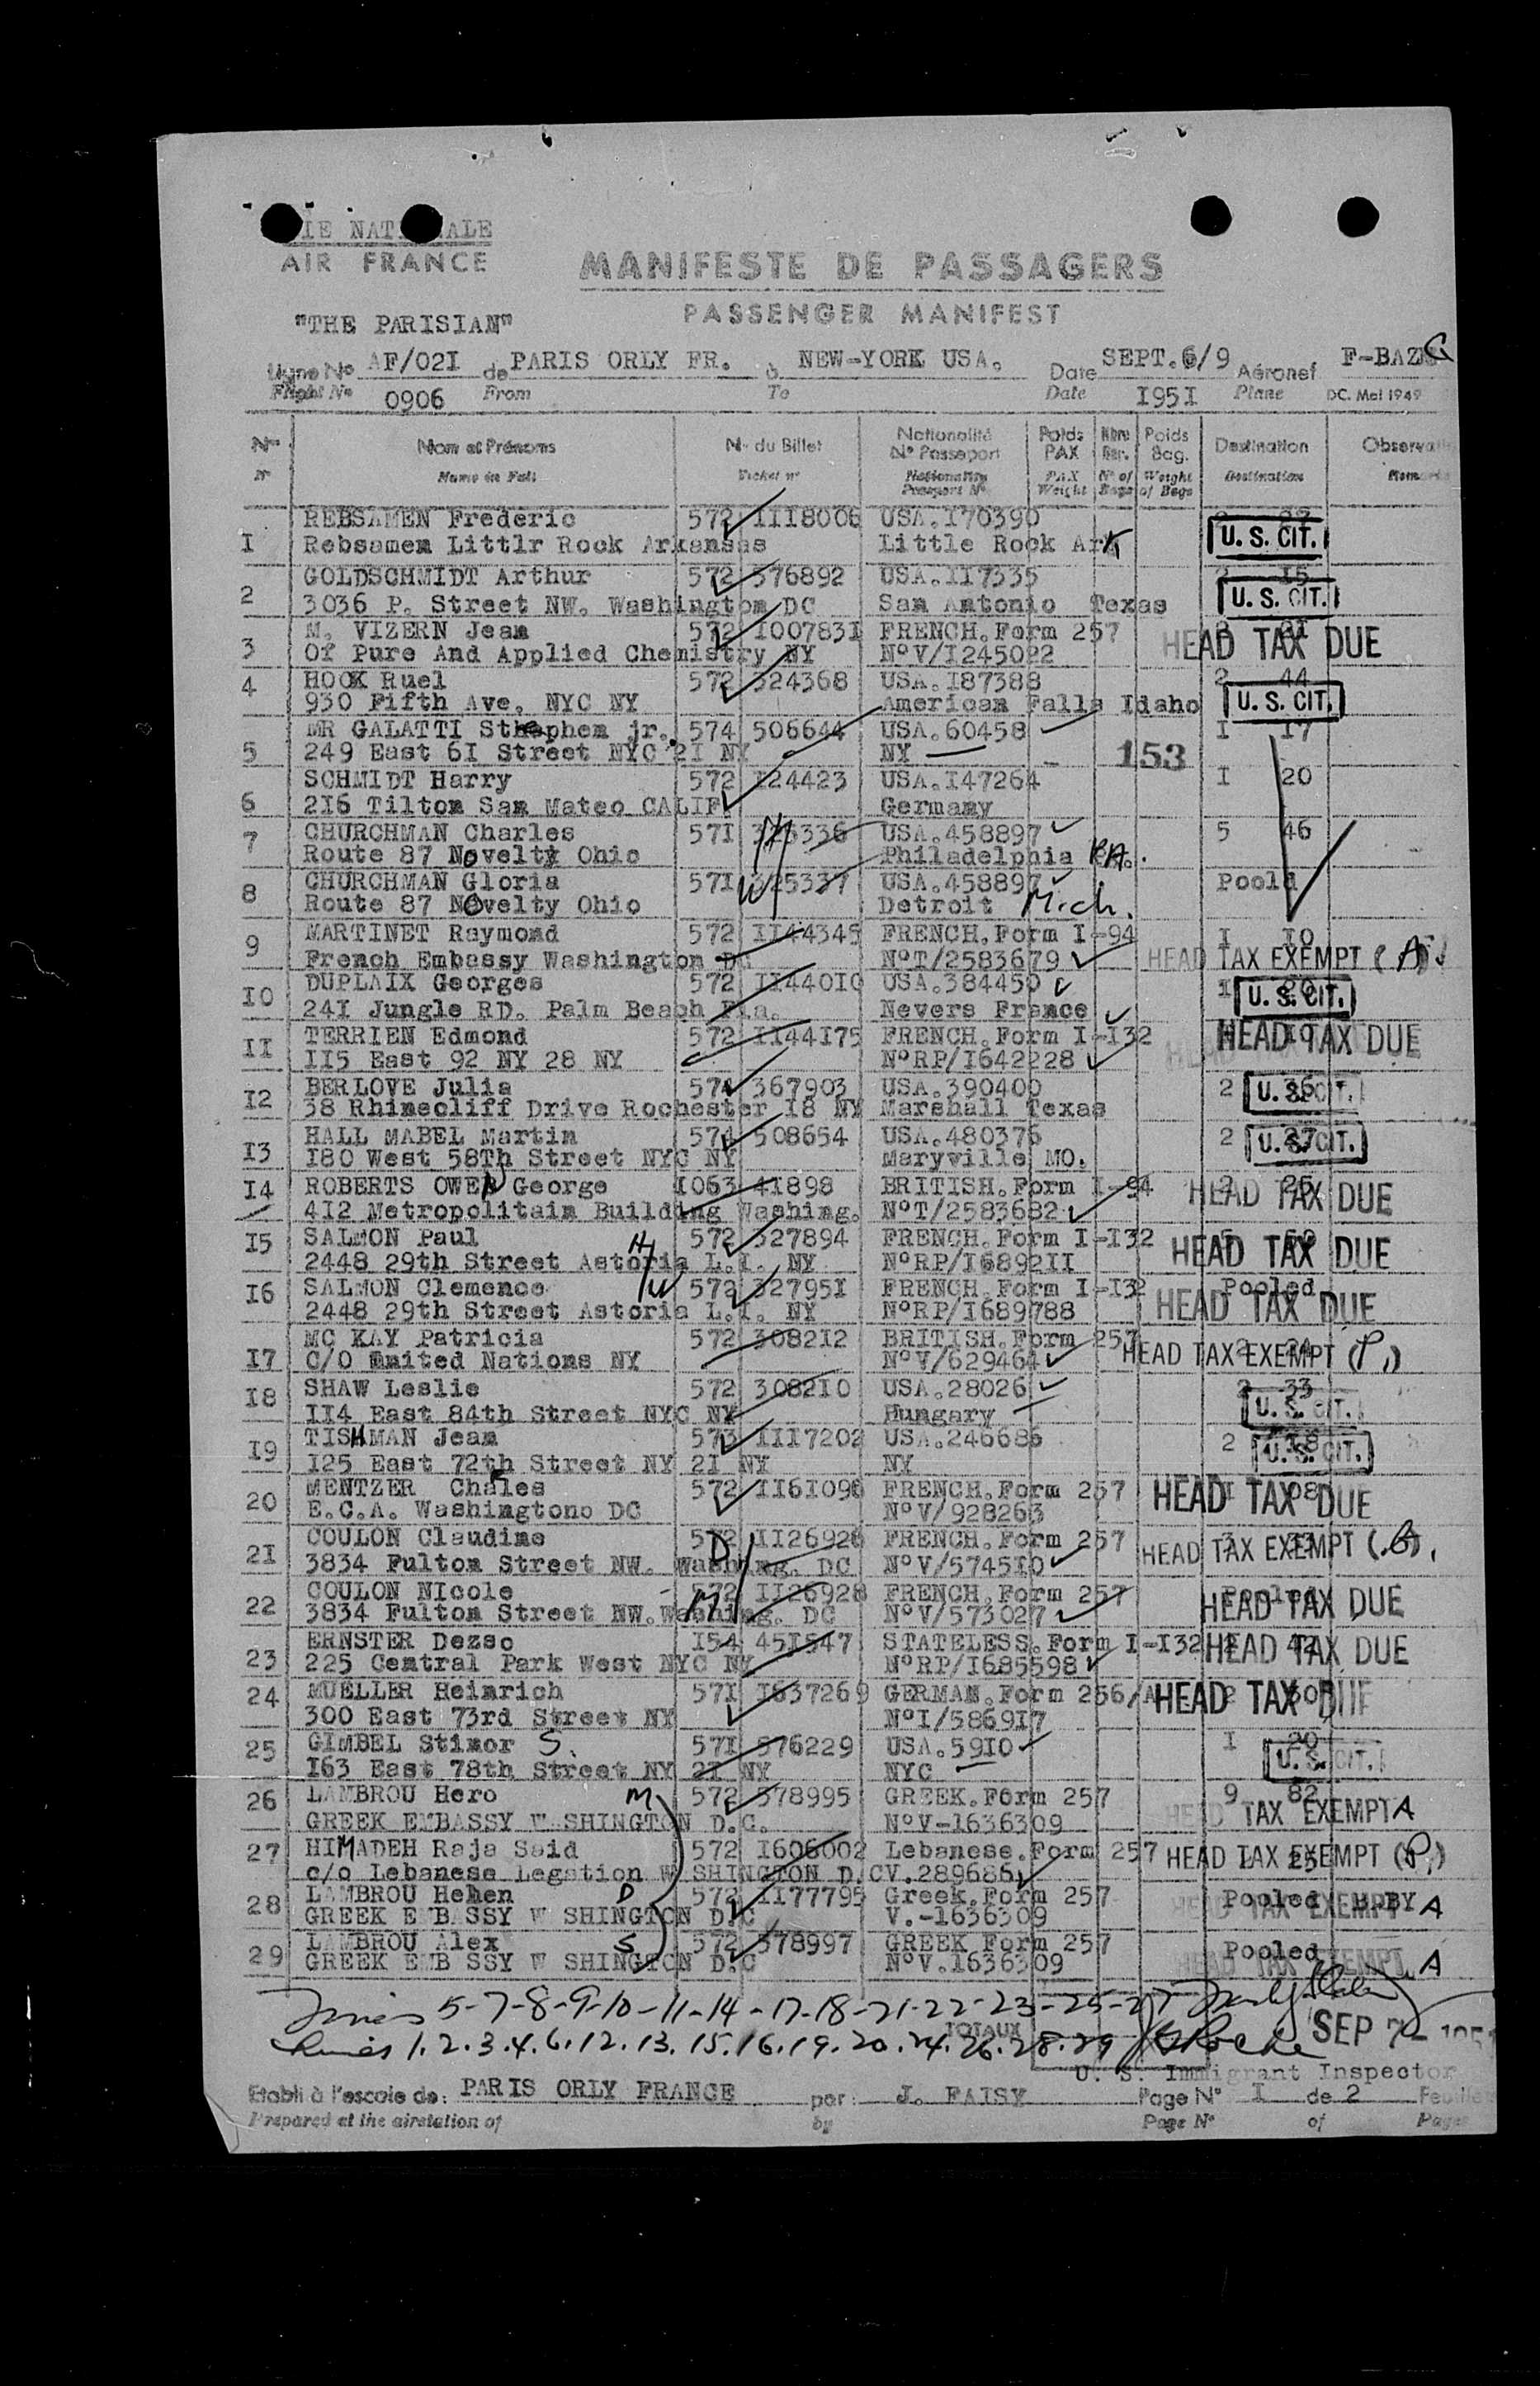 CIE NATIONALE
AIR FRANCE
MANIFESTE DE PASSAGERS
PASSENGER MANIFEST
"THE PARISIAN"
Ligne No AF/02I de PARIS ORLY FR. à NEW-YORK USA. Date SEPT.6/9 Aéronef F-BAZ
Flight No 0906 From To Date I95I Plane DC. Mai 1949
No Nom et Prénoms No du Billet Nationalité No Passeport Poids PAX Nbre Bag. Poids Bag. Destination Observations
No Name in Full Ticket no Nationality Passport No PAX Weight No of Bags Weight of Bags Destination Remarks
REBSAMEN Frederic 572 III8006 USA.I70390
I Rebsamen Littlr Rock Arkansas Little Rock Ark U. S. CIT.
GOLDSCHMIDT Arthur 572 576892 USA.II7335 2 I5
2 3036 P. Street NW. Washington DC San Antonio Texas U. S. CIT.
M. VIZERN Jean 572 I00783I FRENCH.Form 257
3 Of Pure And Applied Chemistry NY NoV/I245022 HEAD TAX DUE
4 HOOK Ruel 572 324368 USA.I87388 2 44
930 Fifth Ave. NYC NY American Falls Idaho U. S. CIT.
MR GALATTI Stephen jr. 574 506644 USA.60458 I I7
5 249 East 6I Street NYC 2I NY NY 153
SCHMIDT Harry 572 I24423 USA.I47264 I 20
6 2I6 Tilton San Mateo CALIF. Germany
7 CHURCHMAN Charles 57I 325336 H USA.458897 5 46
Route 87 Novelty Ohio Philadelphia PA.
8 CHURCHMAN Gloria 57I W 325337 USA.458897 Poold
Route 87 NOvelty Ohio Detroit Mich.
9 MARTINET Raymond 572 II44345 FRENCH.Form I-94 I I0
French Embassy Washington DC NoT/2583679 HEAD TAX EXEMPT (A)
I0 DUPLAIX Georges 572 II440I0 USA.384450 U. S. CIT.
24I Jungle RD. Palm Beach Fla. Nevers France
II TERRIEN Edmond 572 II44I75 FRENCH.Form I-I32 HEAD TAX DUE
II5 East 92 NY 28 NY NoRP/I642228
I2 BERLOVE Julia 574 367903 USA.390400 2 36 U. S. CIT.
38 Rhinecliff Drive Rochester I8 NY Marshall Texas
HALL MABEL Martin 574 508654 USA.480376 2 27 U. S. CIT.
I3 I80 West 58Th Street NYC NY Maryville MO.
I4 ROBERTS OWEN George I063 4I898 BRITISH.Form I-94 HEAD TAX DUE
4I2 Metropolitain Building Washing. NoT/2583682
I5 SALMON Paul 572 327894 FRENCH.Form I-I32 HEAD TAX DUE
2448 29th Street Astoria L.I. NY H NoRP/I6892II
I6 SALMON Clemence W 572 32795I FRENCH.Form I-I32 Pooled
2448 29th Street Astoria L.I. NY NoRP/I689788 HEAD TAX DUE
MC KAY Patricia 572 3082I2 BRITISH.Form 257
I7 C/O United Nations NY NoV/629464 HEAD TAX EXEMPT (P.)
I8 SHAW Leslie 572 3082I0 USA.28026 2 33
II4 East 84th Street NYC NY Hungary U. S. CIT.
I9 TISHMAN Jean 573 III7202 USA.246686 2 I8
I25 East 72th Street NY 2I NY NY U. S. CIT.
20 MENTZER Charles 572 II6I098 FRENCH.Form 257 HEAD TAX DUE
E.C.A. Washingtono DC NoV/928263
2I COULON Claudine 572 II26926 FRENCH.Form 257
3834 Fulton Street NW. Washing. DC D NoV/5745I0 HEAD TAX EXEMPT
22 COULON NIcole 572 II26928 FRENCH.Form 257 HEAD TAX DUE
3834 Fulton Street NW.Washing. DC M NoV/573027
23 ERNSTER Dezso I54 45I547 STATELESS.Form I-I32 HEAD TAX DUE
225 Central Park West NYC NY NoRP/I685598
24 MUELLER Heinrich 57I I637269 GERMAN.Form 256/A HEAD TAX DUE
300 East 73rd Street NY NoI/5869I7
25 GIMBEL Stinor S. 57I 576229 USA.59I0 I 20
I63 East 78th Street NY 2I NY NYC U. S. CIT.
26 LAMBROU Hero M 572 578995 GREEK.Form 257 9 82
GREEK EMBASSY WASHINGTON D.C. NoV-1636309 HEAD TAX EXEMPT A
27 HIMADEH Raja Said 572 I606002 Lebanese.Form 257 HEAD TAX EXEMPT (P.)
c/o Lebanese Legation WASHINGTON D.C V.289686
28 LAMBROU Hehen D 572 II77795 Greek.Form 257 Pooled B.BY
GREEK EMBASSY W SHINGTON D.C V.-1636309 HEAD TAX EXEMPT A
29 LAMBROU Alex S 572 578997 GREEK Form 257 Pooled
GREEK EMB SSY W SHINGTON D.C NoV.1636309 HEAD TAX EXEMPT A
5-7-8-9-10-11-14-17-18-21-22-23-25-27
1.2.3.4.6.12.13.15.16.19.20.24.26.28.29 TOTAUX SEP 7 - 1951
U. S. Immigrant Inspector
Etabli à l'escale de: PARIS ORLY FRANCE par: J. FAISY Page No I de 2 Feuilles
Prepared at the airstation of by Page No of Pages